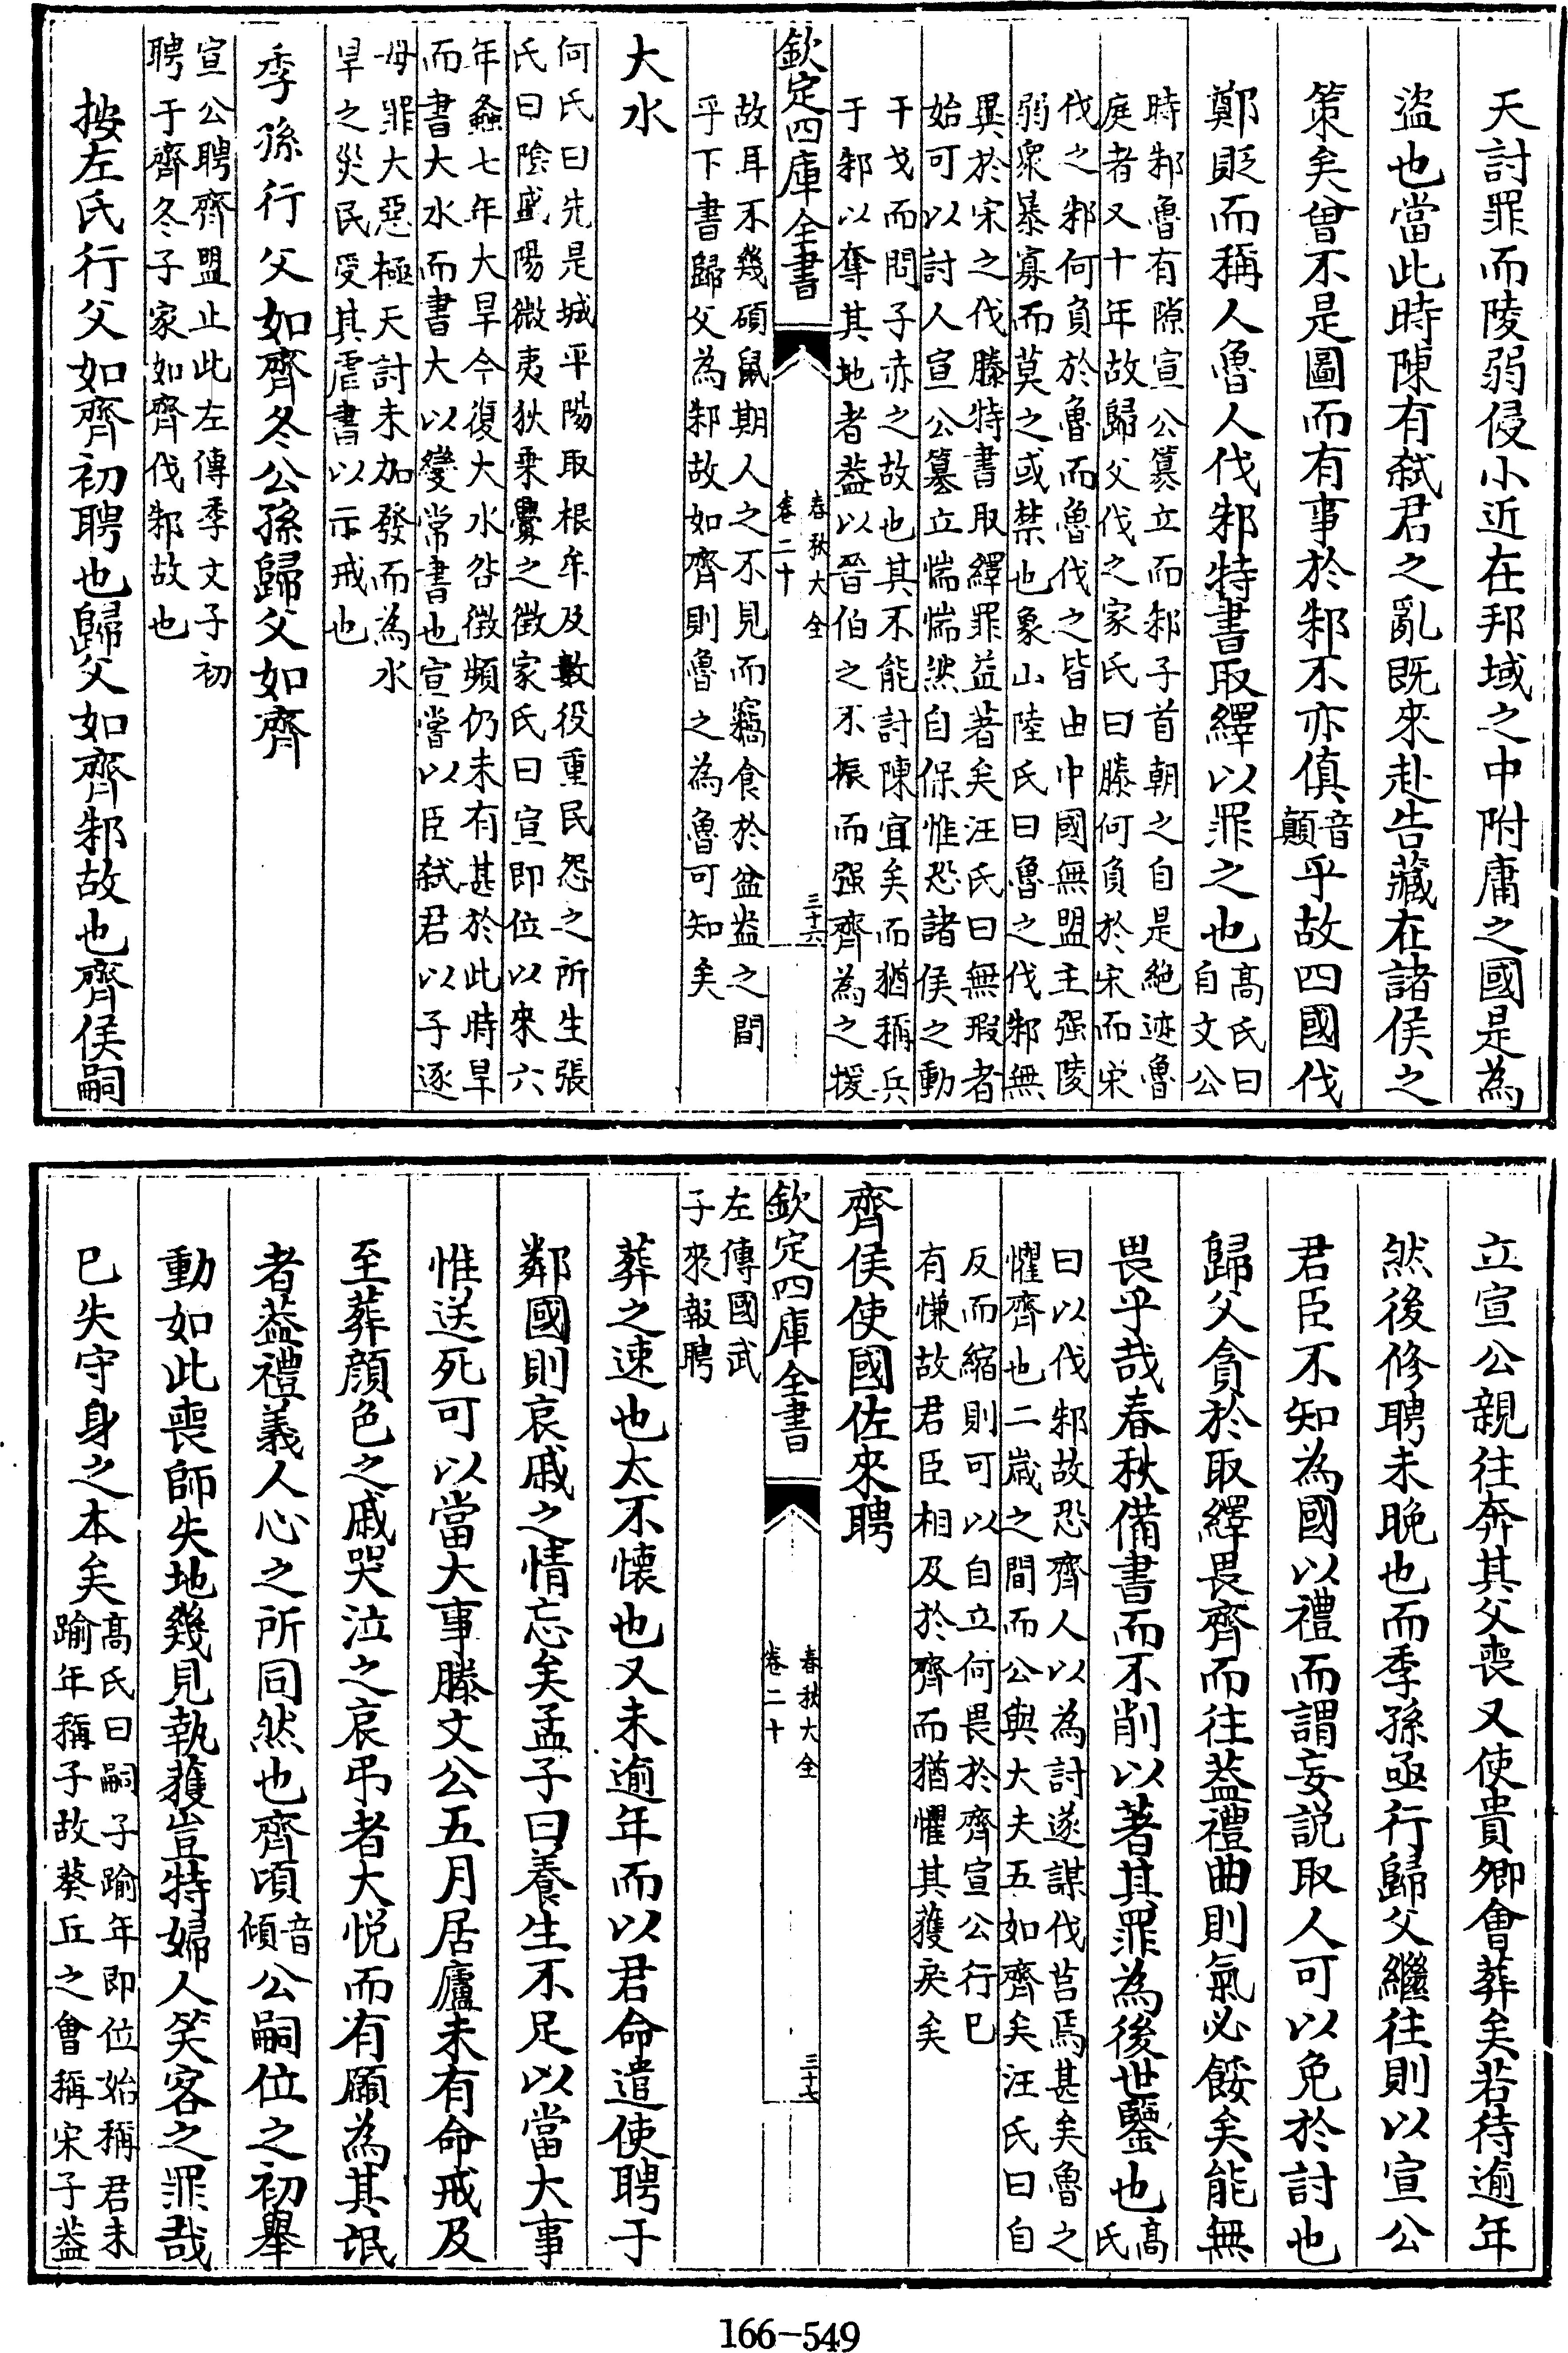 天討罪而陵弱侵小近在邦域之中附庸之國是為
盜也當此時陳有弑君之亂既來赴告藏在諸侯之
策矣曾不是圖而有事於邾不亦傎音顛乎故四國伐
鄭貶而稱人魯人伐邾特書取繹以罪之也高氏曰自文公
時邾魯有隙宣公簒立而邾子首朝之自是絶迹魯
庭者又十年故歸父伐之家氏曰滕何負於宋而宋
伐之邾何負於魯而魯伐之皆由中國無盟主强陵
弱衆暴寡而莫之或禁也象山陸氏曰魯之伐邾無
異於宋之伐滕特書取繹罪益著矣汪氏曰無瑕者
始可以討人宣公簒立惴惴然自保惟恐諸侯之動
干戈而問子赤之故也其不能討陳宜矣而猶稱兵
于邾以奪其地者葢以晉伯之不振而强齊為之援
故耳不幾碩鼠期人之不見而竊食於盆盎之間
乎下書歸父為邾故如齊則魯之為魯可知矣
欽定四庫全書
春秋大全
卷二十
三十六
大水
何氏曰先是城平陽取根牟及數役重民怨之所生張
氏曰陰盛陽微夷狄乗釁之徵家氏曰宣即位以來六
年螽七年大旱今復大水咎徴頻仍未有甚於此時旱
而書大水而書大以變常書也宣嘗以臣弑君以子逐
母罪大惡極天討未加發而為水
旱之災民受其虐書以示戒也
季孫行父如齊冬公孫歸父如齊
宣公聘齊盟止此左傳季文子初
聘于齊冬子家如齊伐邾故也
按左氏行父如齊初聘也歸父如齊邾故也齊侯嗣
立宣公親往奔其父喪又使貴卿會葬矣若待逾年
然後修聘未晚也而季孫亟行歸父繼往則以宣公
君臣不知為國以禮而謂妄説取人可以免於討也
歸父貪於取繹畏齊而往葢禮曲則氣必餒矣能無
畏乎哉春秋備書而不削以著其罪為後世鑒也高氏
曰以伐邾故恐齊人以為討遂謀伐莒焉甚矣魯之
懼齊也二嵗之間而公與大夫五如齊矣汪氏曰自
反而縮則可以自立何畏於齊宣公行巳
有慊故君臣相及於齊而猶懼其獲戾矣
齊侯使國佐來聘
欽定四庫全書
春秋大全
卷二十
三十七
左傳國武
子來報聘
葬之速也太不懐也又未逾年而以君命遣使聘于
鄰國則哀戚之情忘矣孟子曰養生不足以當大事
惟送死可以當大事滕文公五月居廬未有命戒及
至葬顔色之戚哭泣之哀弔者大悦而有願為其氓
者葢禮義人心之所同然也齊頃音傾公嗣位之初舉
動如此喪師失地幾見執獲豈特婦人笑客之罪哉
巳失守身之本矣高氏曰嗣子踰年即位始稱君未
踰年稱子故葵丘之會稱宋子葢
166-549